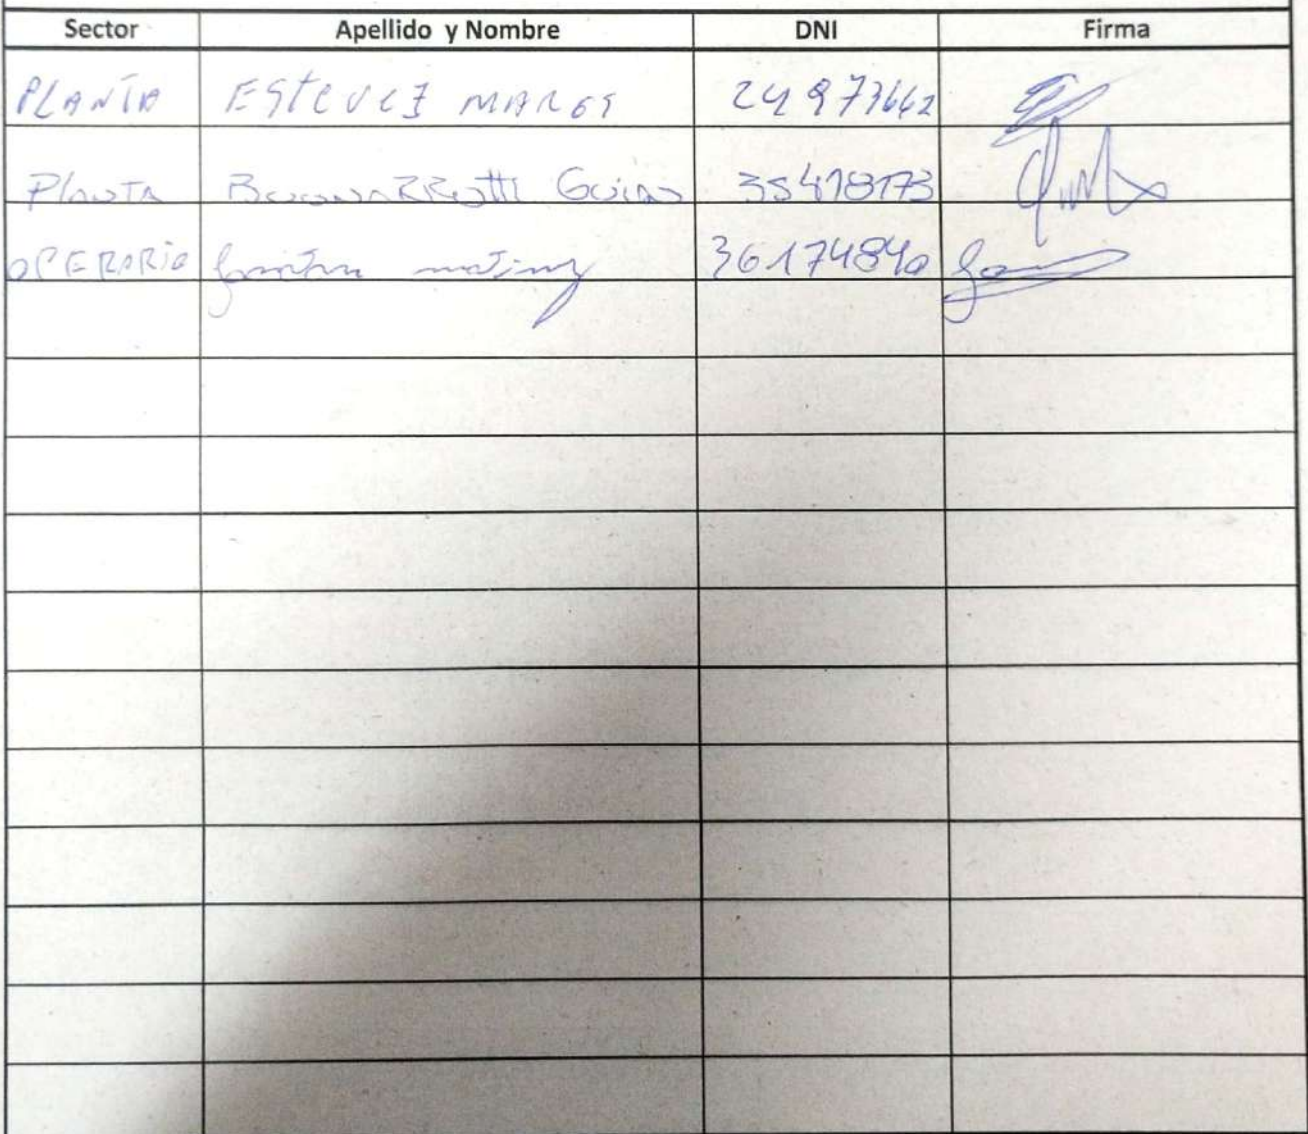 Sector Apellido y Nombre DNI Firma
PLANTA ESteveZ MARCOS 24973662
PlanTA Buonarriotti Guido 35418173
OPERARIO 36174840